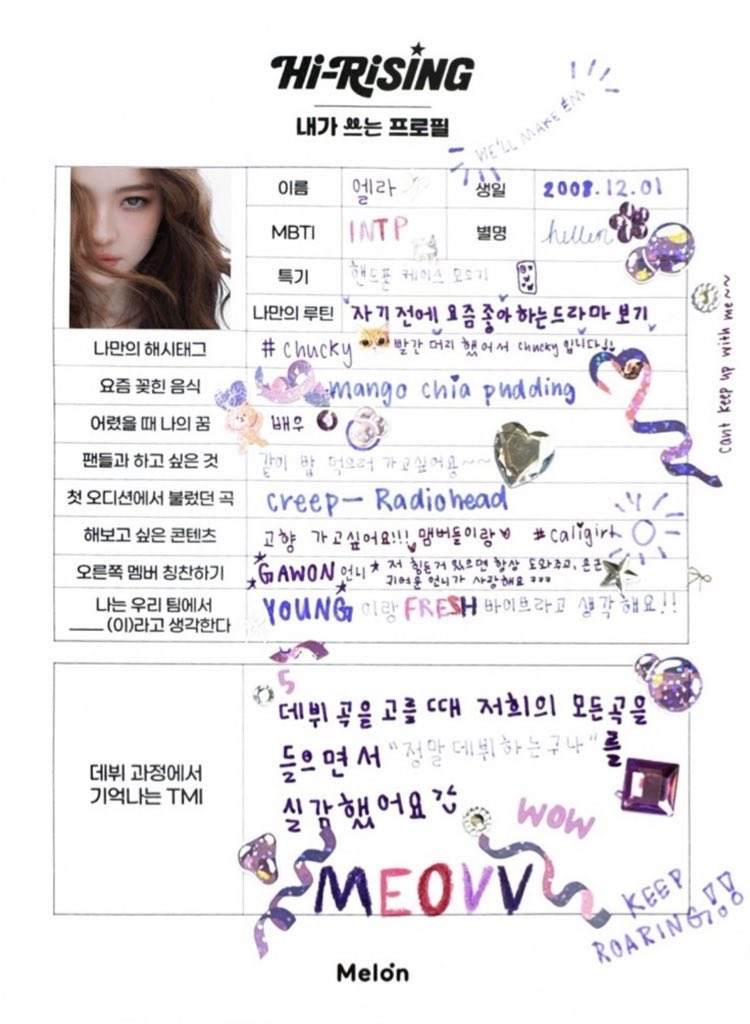 Hi-RiSiNG
내가 쓰는 프로필
WE'LL MAKE EM
이름 엘라 생일 2008.12.01
MBTI INTP 별명 hellen
특기 핸드폰 케이스 모으기
나만의 루틴 자기 전에 요즘 좋아하는 드라마 보기
나만의 해시태그 #chucky 빨간 머리 했어서 chucky입니다!!
요즘 꽂힌 음식 mango chia pudding
어렸을 때 나의 꿈 배우
팬들과 하고 싶은 것 같이 밥 먹으러 가고싶어용~~
첫 오디션에서 불렀던 곡 creep — Radiohead
해보고 싶은 콘텐츠 고향 가고싶어요!!! 멤버들이랑♥ #caligirl
오른쪽 멤버 칭찬하기 GAWON 언니 저 힘든거 있으면 항상 도와주고, 은근
귀여운 언니가 사랑해요
나는 우리 팀에서
____ (이)라고 생각한다 YOUNG 이랑 FRESH 바이브라고 생각해요!!
cant keep up with me~~
5
데뷔 곡을 고를 때 저희의 모든곡을
들으면서 "정말 데뷔하는구나"를
실감했어요
데뷔 과정에서
기억나는 TMI
WOW
MEOVV
KEEP
ROARING!!
Melon